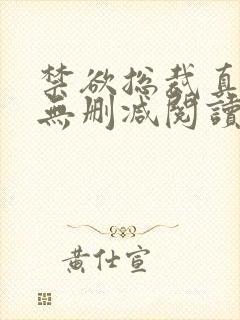 禁欲總裁真
無刪減閱讀
黃仕宣